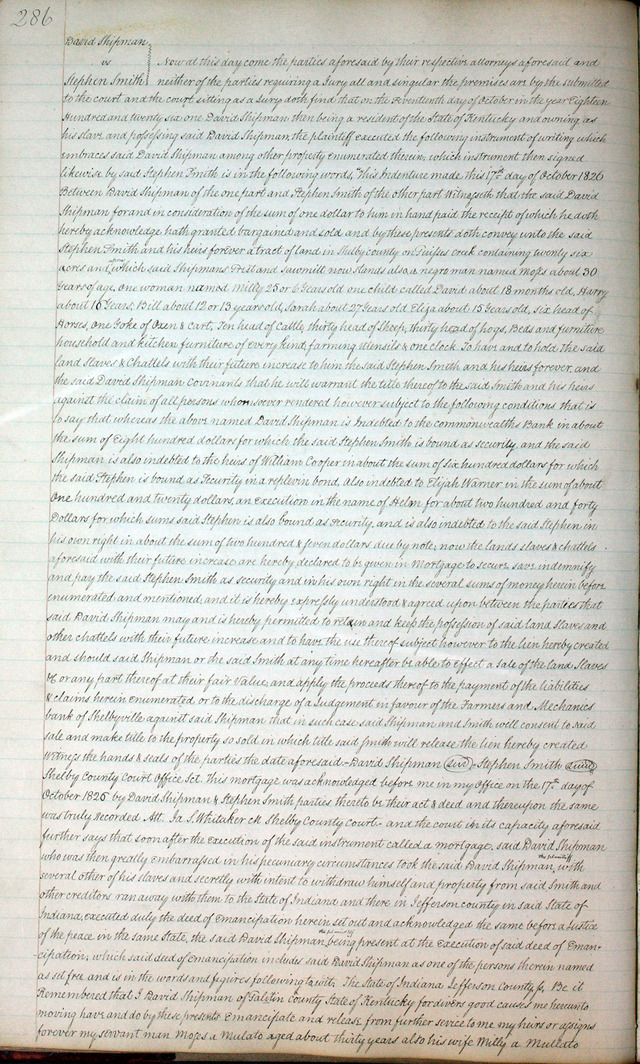 286
David Shipman
vs
Stephen Smith
Now at this day come the parties aforesaid by their respective attorneys aforesaid and
neither of the parties requiring a Jury all and singular the premises are by the submitted
to the court and the court sitting as a Jury doth find that on the Seventeenth day of October in the year Eighteen
Hundred and twenty six one David Shipman then being a resident of the State of Kentucky and owning as
his slave and possessing said David Shipman, the plaintiff executed the following instrument of writing which
embraces said David Shipman among other property enumerated therein, which instrument then signed
likewise by said Stephen Smith is in the following words, This Indenture made this 17th day of October 1826
Between David Shipman of the one part and Stephen Smith of the other part Witnesseth that the said David
Shipman for and in consideration of the sum of one dollar to him in hand paid the receipt of which he doth
hereby acknowledge hath granted bargained and sold and by these presents doth convey unto the said
Stephen Smith and his heirs forever a tract of land in Shelby county on Creek containing twenty six
acres and on which said Shipmans and sawmill now stands also a negro man named Mozes about 30
years of age, one woman named Milly 25 or 6 years old one child called David about 18 months old, Harry
about 16 years, Bill about 12 or 13 years old, Sarah about 27 years old Eliza about 15 years old, Six head of
Horses, one Yoke of Oxen & cart, Ten head of Cattle, thirty head of Sheep, thirty head of hogs, Beds and furniture
household and kitchen furniture of every kind, farming utensils & one clock To have and to hold The said
land Slaves & Chattels with their future increase to him the said Stephen Smith and his heirs forever, and
the said David Shipman Covinants that he will warrant the title thereof to the said Smith and his heirs
against the claim of all persons whomsoever rendered however subject to the following conditions that is
to say that whereas the above named David Shipman is Indebted to the commonwealths Bank in about
the sum of Eight hundred dollars for which the said Stephen Smith is bound as security and the said
Shipman is also indebted to the heirs of William Cooper in about the sum of six hundred dollars for which
the said Stephen is bound as Security in a replevin bond, Also indebted to Elijah Warner in the sum of about
One hundred and twenty dollars, an Execution in the name of Helm for about two hundred and forty
Dollars for which sums said Stephen is also bound as security, and is also indebted to the said Stephen in
his own right in about the sum of two hundred & seven dollars due by note, now the lands slaves & chattels
aforesaid with their future increase are hereby declared to be given in Mortgage to secure save indemnify
and pay the said Stephen Smith as security and in his own right in the several sums of money herein before
enumerated and mentioned, and it is hereby expressly understood & agreed upon between the parties that
said David Shipman may and is hereby permitted to retain and keep the possession of said land Slaves and
other chattels with their future increase and to have the use thereof subject however to the lien hereby created
and should said Shipman or the said Smith at any time hereafter be able to effect a sale of the land, Slaves
&c or any part thereof at their fair value, and apply the proceeds thereof to the payment of the liabilities
& claims herein enumerated or to the discharge of a Judgement in favour of the Farmers and Mechanics
bank of Shelbyville against said Shipman that in such case said Shipman and Smith will consent to said
sale and make title to the property so sold in which title said Smith will release the lien hereby created
Witness the hands & seals of the parties the date aforesaid David Shipman (seal) Stephen Smith (seal)
Shelby County Court Office Sct. This mortgage was acknowledged before me in my Office on the 17th day of
October 1826 by David Shipman & Stephen Smith parties thereto be their act & deed and thereupon the same
was truly recorded Att. Ja. S. Whitaker Clk Shelby County Court and the court in its capacity aforesaid
further says that soon after the execution of the said instrument called a mortgage, said David Shipman
who was then greatly embarrassed in his pecuniary circumstances took the said David Shipman, the plaintiff with
several other of his slaves and secretly with intent to withdraw himself and property from said Smith and
other creditors ran away with them to the State of Indiana and there in Jefferson county in said State of
Indiana, executed duly the deed of Emancipation herein set out and acknowledged the same before a Justice
of the peace in the same State, the said David Shipman the plaintiff being present at the execution of said deed of Eman-
cipation, which said deed of Emancipation includes said David Shipman as one of the persons therein named
as set free and is in the words and figures following towit. The State of Indiana Jefferson County ss, Be it
Remembered that I David Shipman of Gallatin County State of Kentucky for divers good causes me hereunto
moving have and do by these presents Emancipate and release from further service to me my heirs or assigns
forever my servant man Mozes a Mulato aged about thirty years also his wife Milly a Mullato